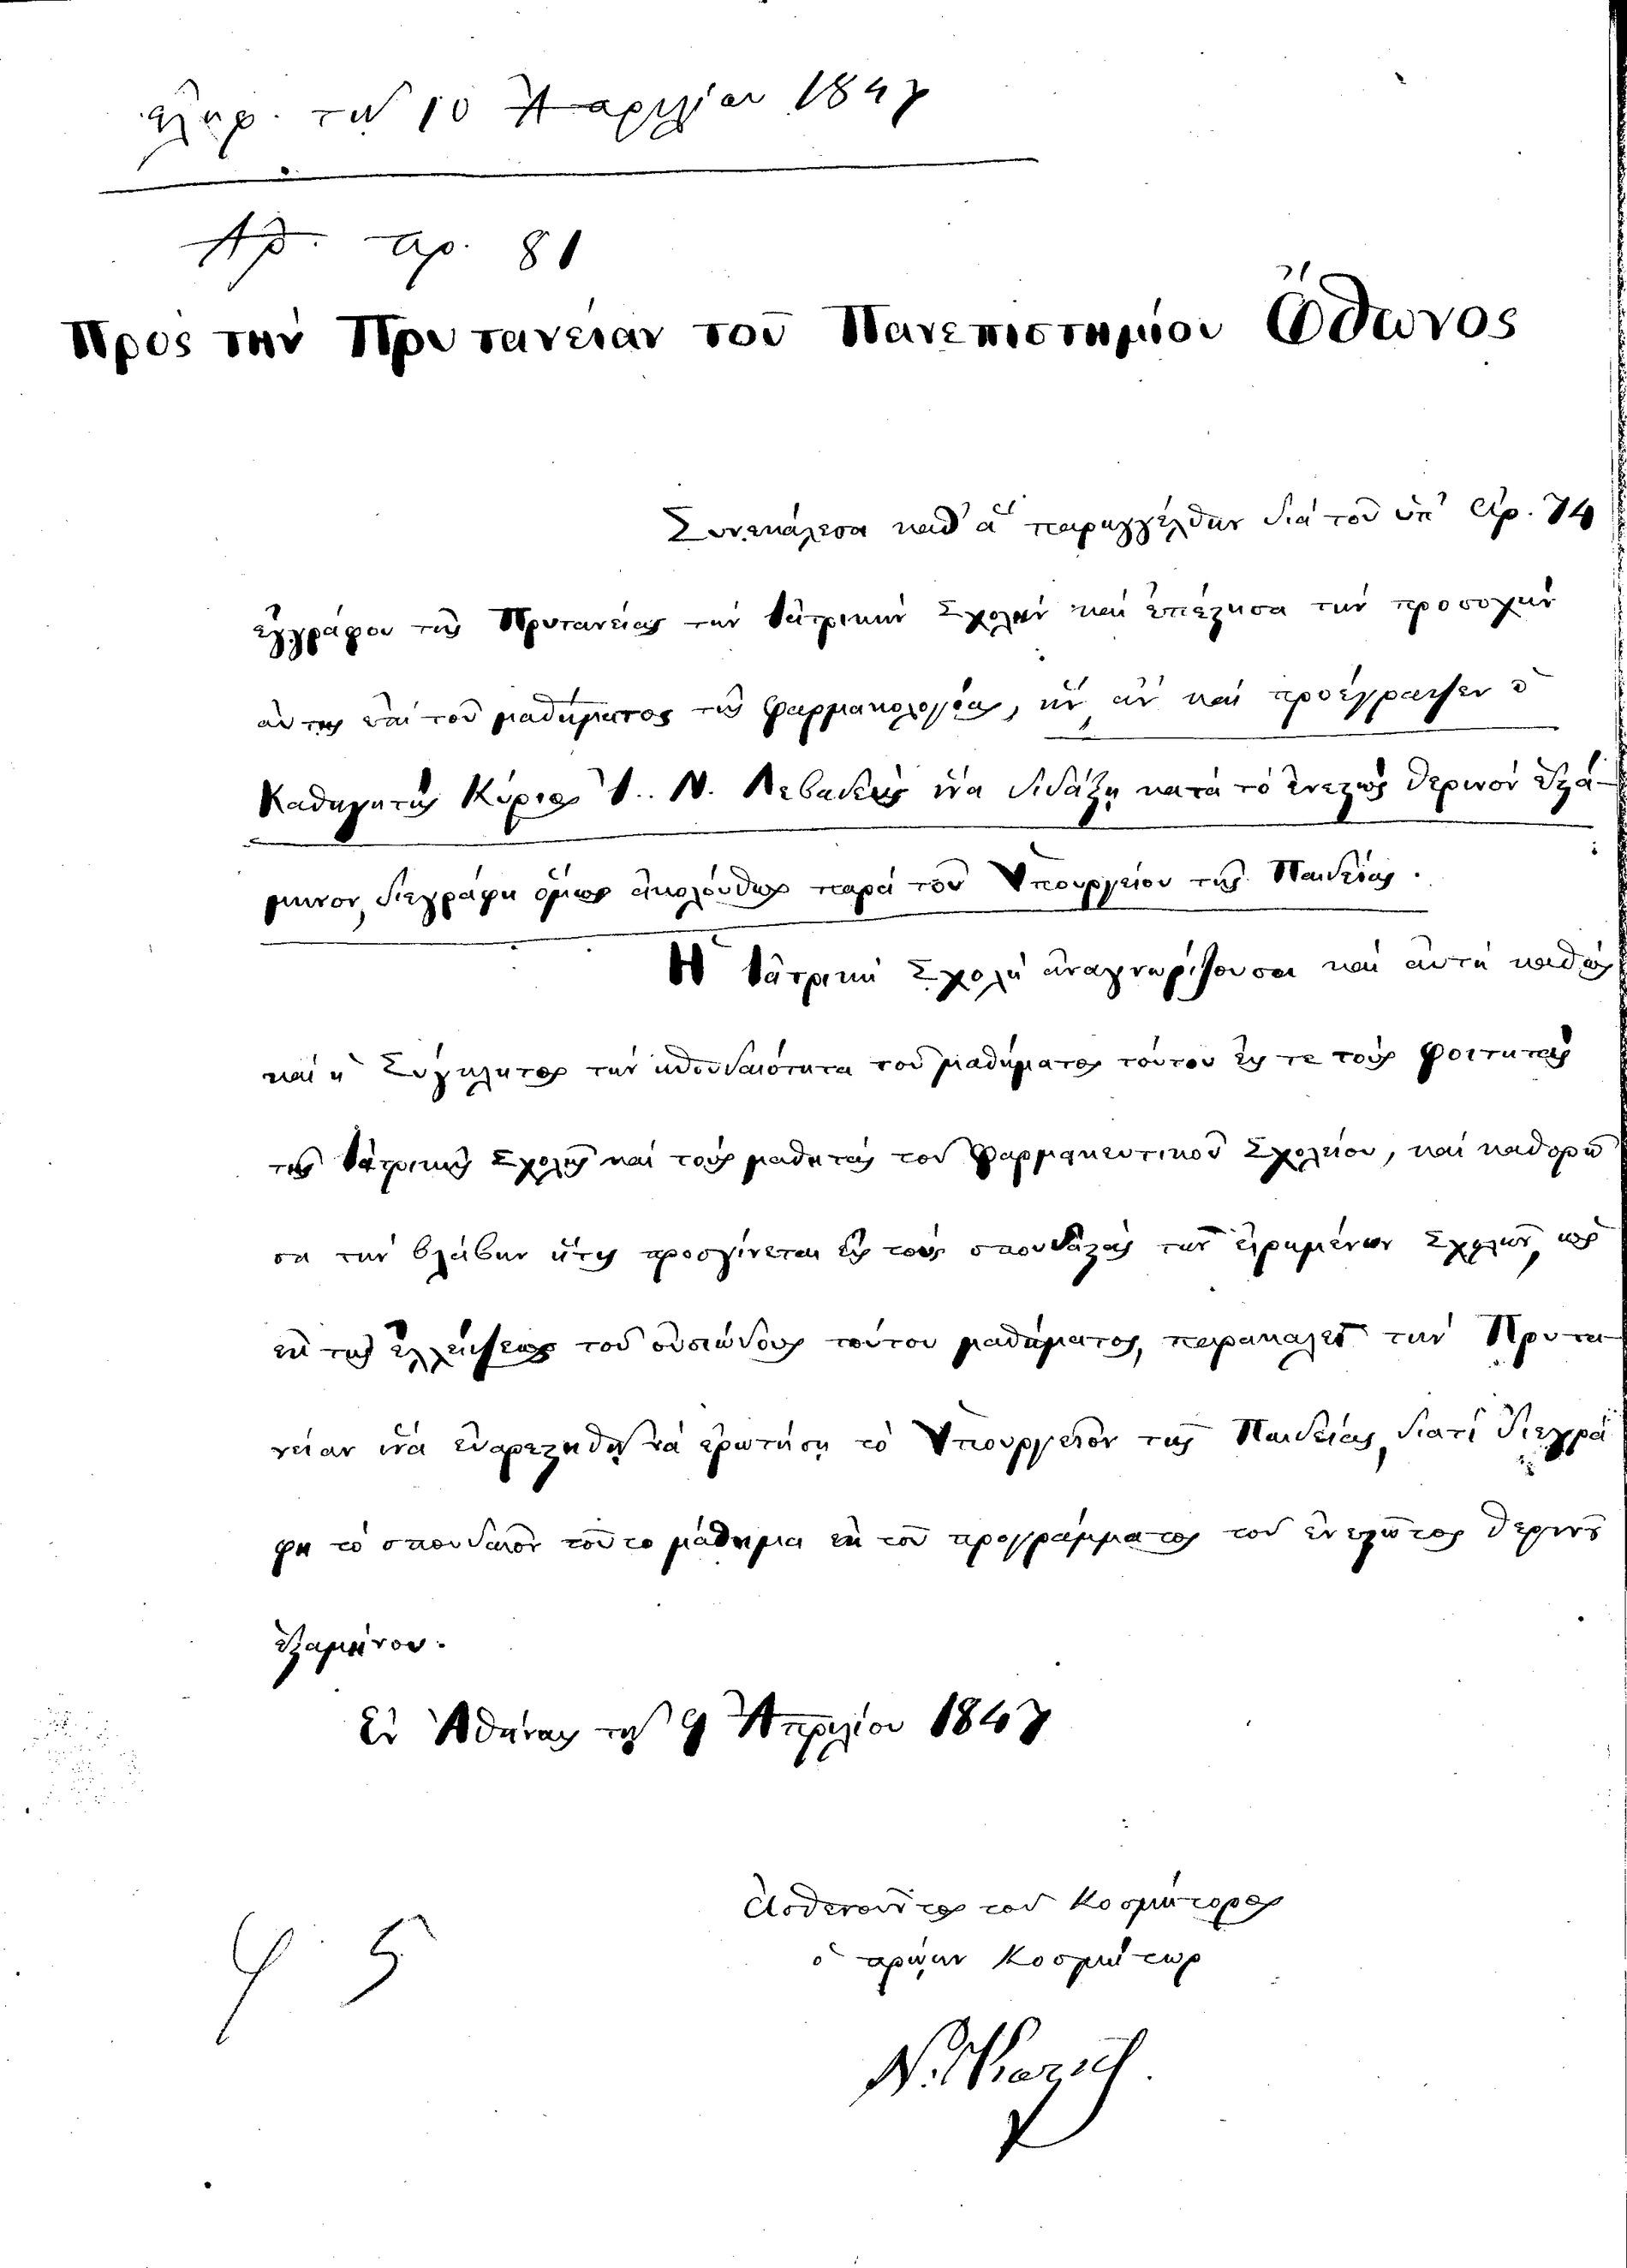 ἐλήφ. τῇ 10 Ἀπριλίου 1847
Ἀρ. πρ. 81
Πρὸς τὴν Πρυτανείαν τοῦ Πανεπιστημίου Ὄθωνος
Συνεκάλεσα καθ' ἃ παρηγγέλθην διὰ τοῦ ὑπ' Ἀρ. 74
ἐγγράφου τῆς Πρυτανείας τὴν Ἰατρικὴν Σχολὴν καὶ ἐπέστησα τὴν προσοχὴν
αὐτῆς ἐπὶ τοῦ μαθήματος τῆς Φαρμακολογίας, ἣν ἂν καὶ προέγραψεν ὁ
Καθηγητὴς Κύριος Ἰ. Ν. Λεβαδεὺς ἵνα διδάξῃ κατὰ τὸ ἐνεστὼς θερινὸν ἑξά-
μηνον, διεγράφη ὅμως ἀκολούθως παρὰ τοῦ Ὑπουργείου τῆς Παιδείας.
Ἡ Ἰατρικὴ Σχολὴ ἀναγνωρίζουσα καὶ αὐτὴ καθὼς
καὶ ἡ Σύγκλητος τὴν σπουδαιότητα τοῦ μαθήματος τούτου εἴς τε τοὺς φοιτητὰς
τῆς Ἰατρικῆς Σχολῆς καὶ τοὺς μαθητὰς τοῦ Φαρμακευτικοῦ Σχολείου, καὶ καθορῶ
σα τὴν βλάβην ἥτις προσγίνεται εἰς τοὺς σπουδαστὰς τῶν εἰρημένων Σχολῶν, ὡς
ἐκ τῆς ἐλλείψεως τοῦ οὐσιώδους τούτου μαθήματος, παρακαλεῖ τὴν Πρυτα
νείαν ἵνα εὐαρεστηθῇ νὰ ἐρωτήσῃ τὸ Ὑπουργεῖον τῆς Παιδείας, διατί διεγρά
φη τὸ σπουδαῖον τοῦτο μάθημα ἐκ τοῦ προγράμματος τοῦ ἐνεστῶτος θερινοῦ
ἑξαμήνου.
Ἐν Ἀθήναις τῇ 9 Ἀπριλίου 1847
Ἀσθενοῦντος τοῦ Κοσμήτορος
ὁ πρώην Κοσμήτωρ
Ν. Κωστῆς
φ 5